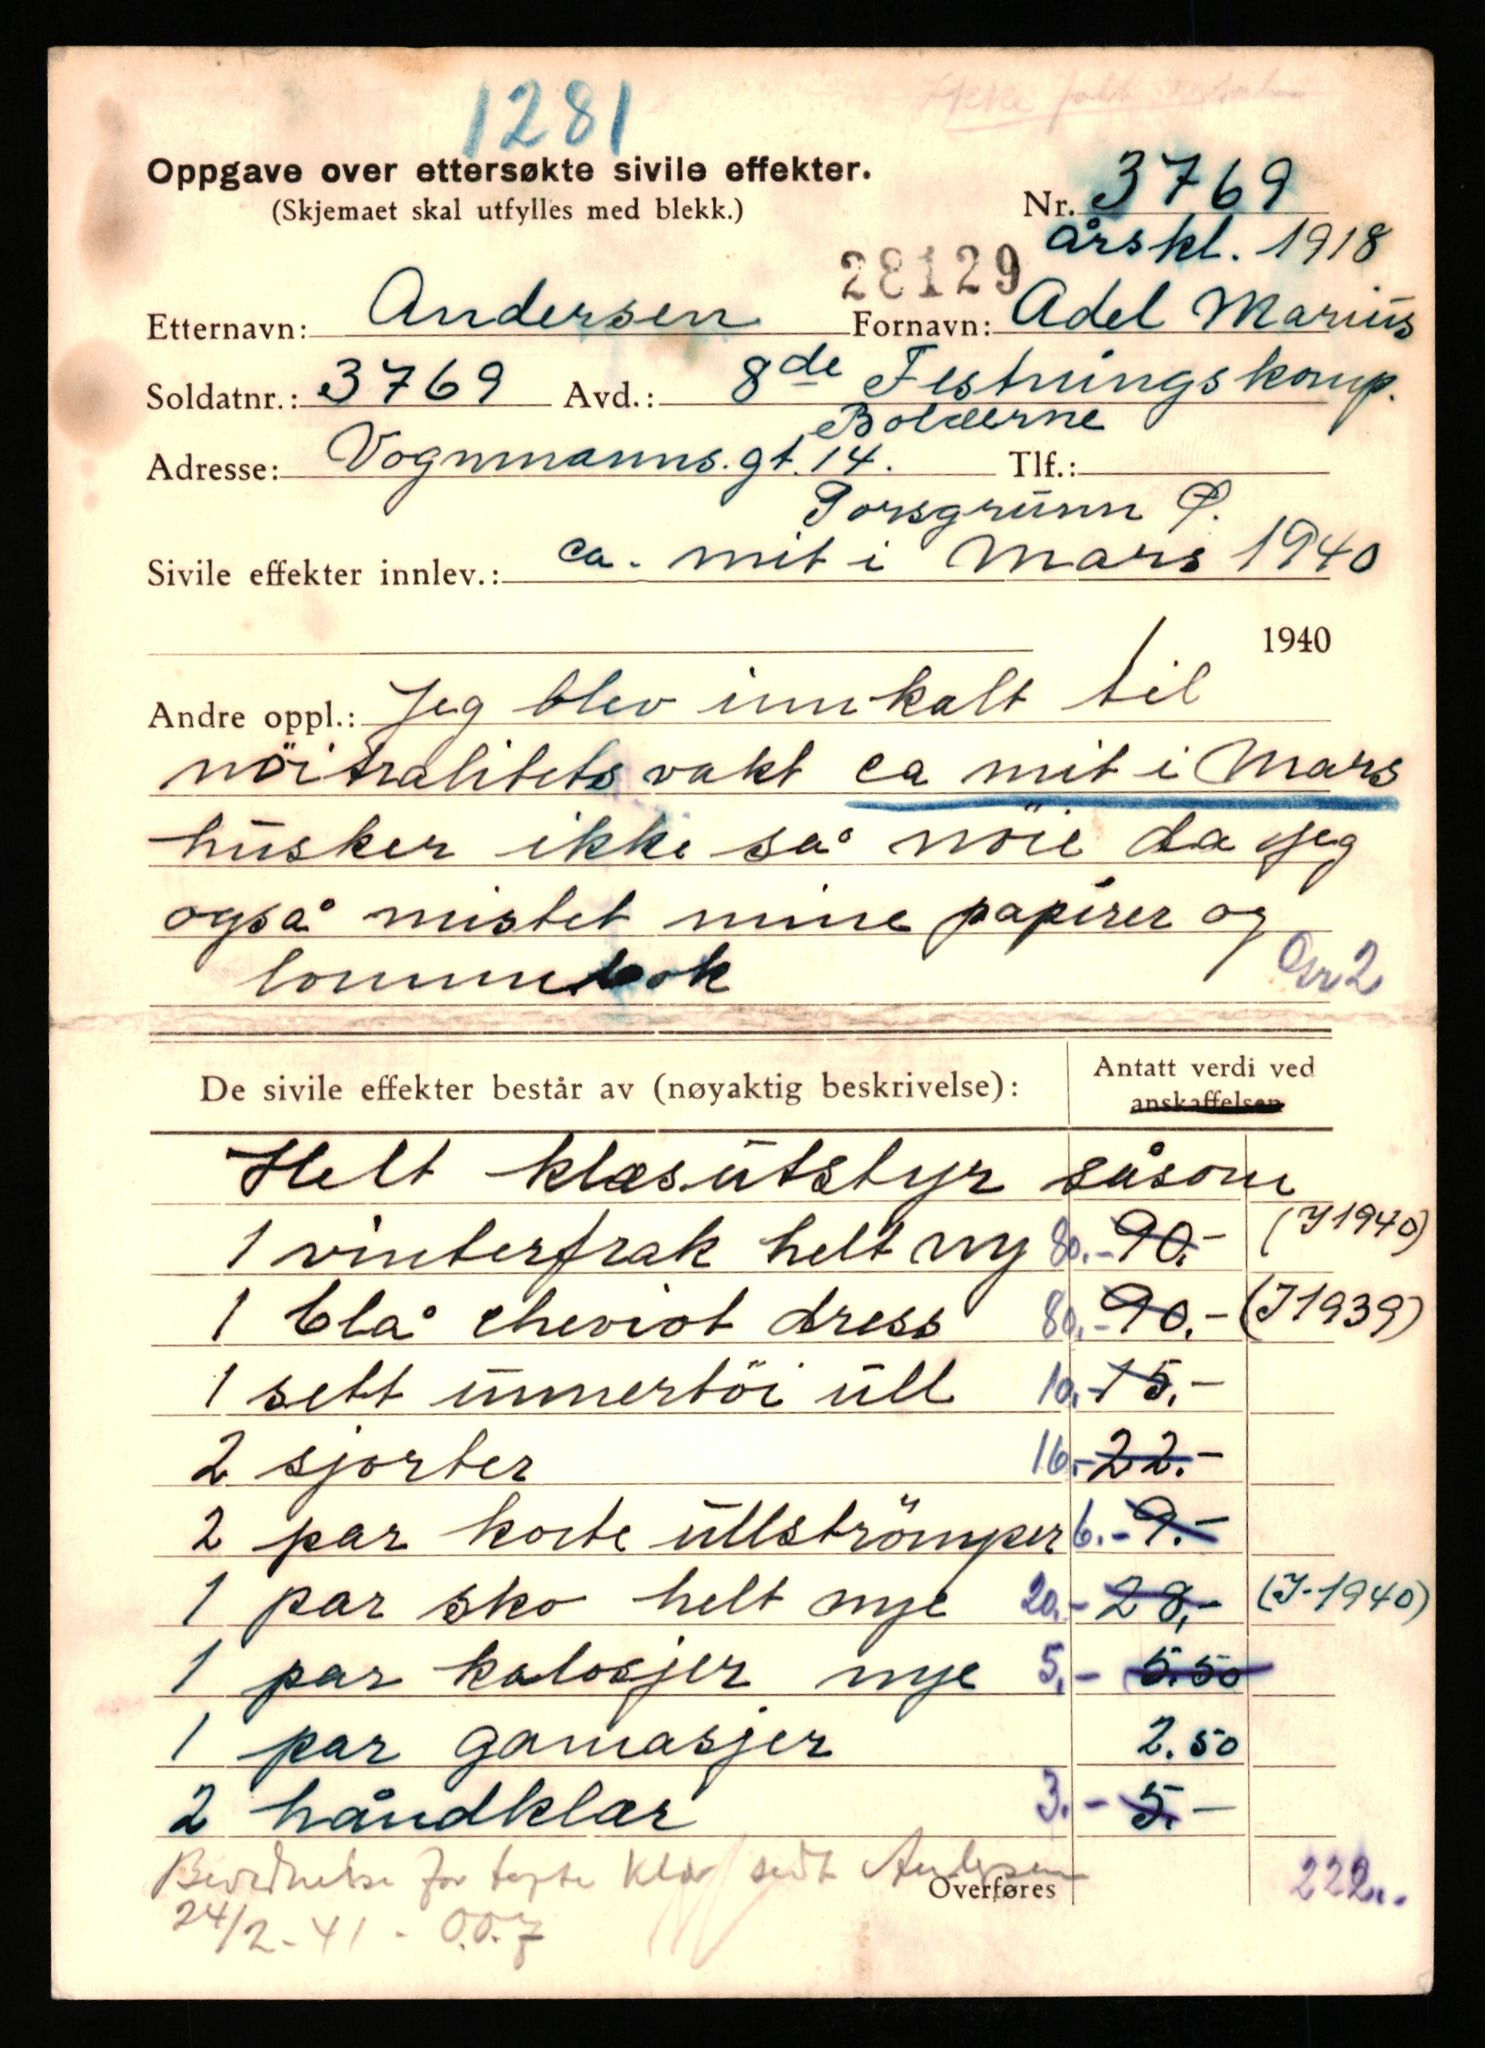 1281
Oppgave over ettersøkte sivile effekter.
(Skjemaet skal utfylles med blekk.)
Nr. 3769
årskl. 1918
28129
Etternavn: Andersen Fornavn: Adel Marius
Soldatnr.: 3769 Avd.: 8de Festningskomp.
Bolærne
Adresse: Vognmanns.gt. 14. Tlf.:
Porsgrunn Ø.
Sivile effekter innlev.: ca. mit i Mars 1940
/ 1940
Andre oppl.: Jeg blev innkalt til
nöitralitetsvakt ca mit i Mars
husker ikke så nöie da jeg
også mistet mine papirer og
lommebok
De sivile effekter består av (nøyaktig beskrivelse): Antatt verdi ved
anskaffelsen
Helt klæsutstyr såsom
1 vinterfrak helt ny 80.- 90.- (I 1940)
1 blå cheviot dress 80.- 90.- (I 1939)
1 sett unnertöi ull 10.- 15.-
2 sjorter 16.- 22.-
2 par korte ullströmper 6.- 9.-
1 par sko helt nye 20.- 28.- (I-1940)
1 par kalosjer nye 5.- 5.50
1 par gamasjer 2.50
2 håndklær 3.- 5.-
for tapte klær sedt Andersen
Overføres 222..-
24/2-41 -